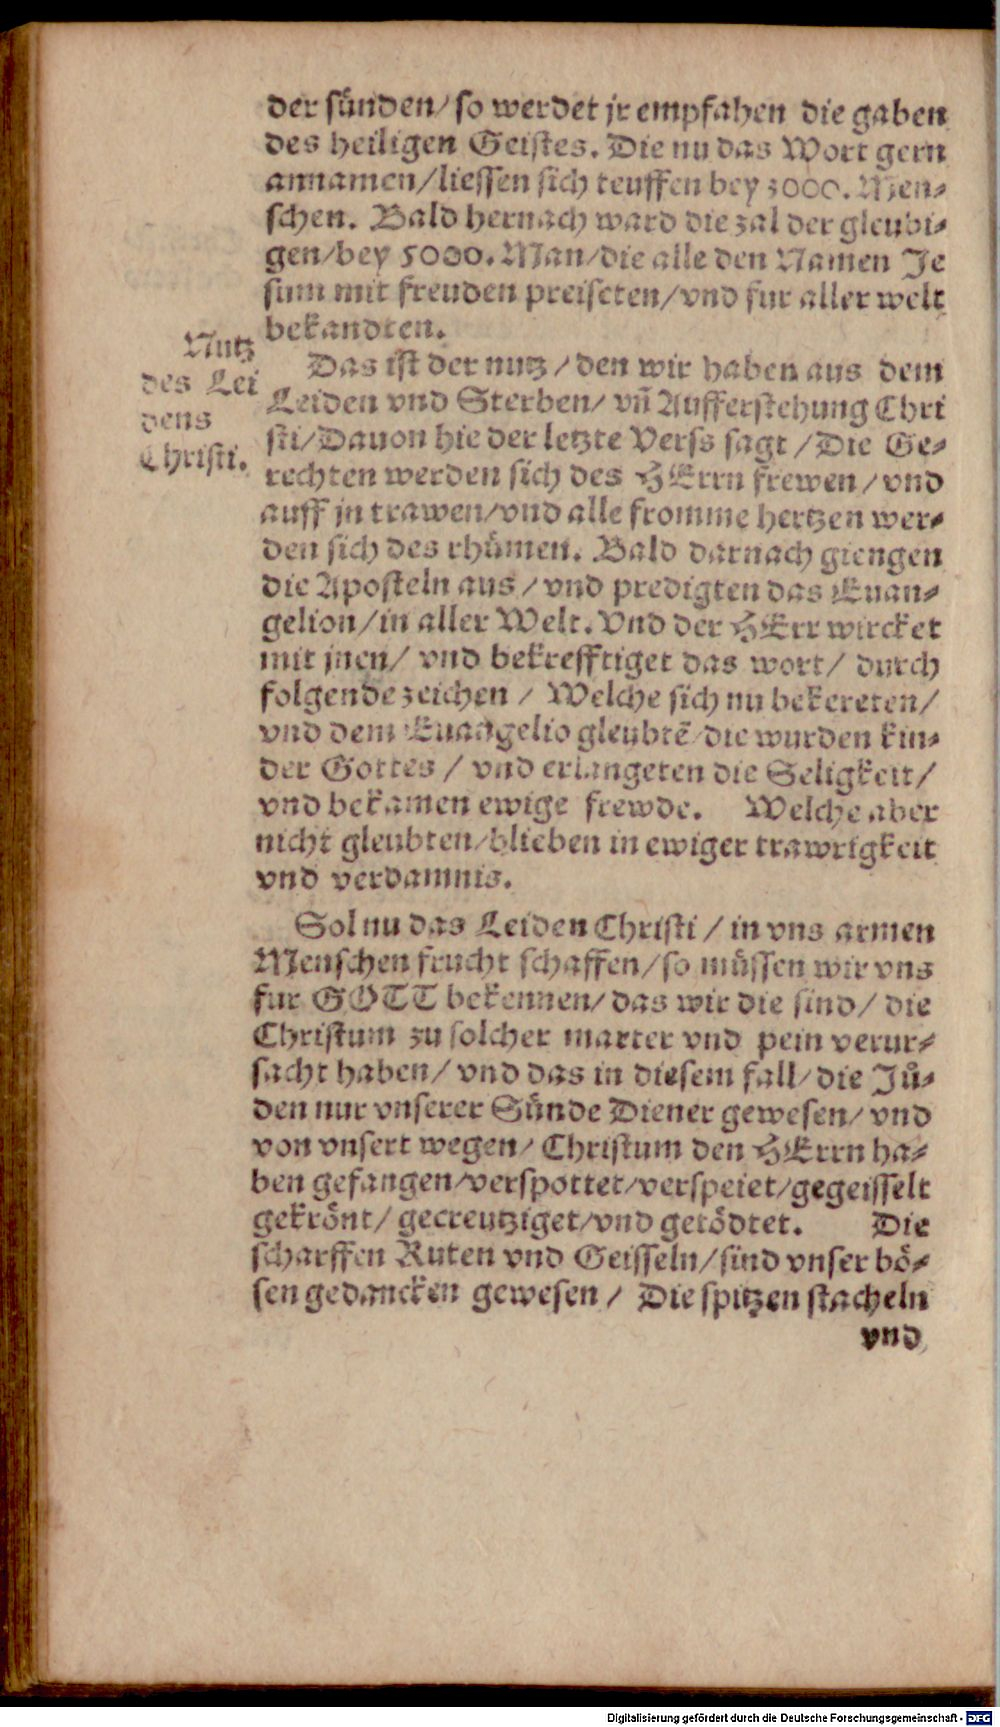 der sünden/ so werdet jr empfahen die gaben
des heiligen Geistes. Die nu das Wort gern
annamen/ liessen sich teuffen bey 3000. Men-
schen. Bald hernach ward die zal der gleubi-
gen/ bey 5000. Man/ die alle den Namen Je
sum mit freuden preiseten/ vnd fur aller welt
bekandten.
Nutz
des Lei
dens
Christi.
Das ist der nutz/ den wir haben aus dem
Leiden vnd Sterben/ vñ Aufferstehung Chri
sti/ Dauon hie der letzte Verss sagt/ Die Ge-
rechten werden sich des HErrn frewen/ vnd
auff jn trawen/ vnd alle fromme hertzen wer-
den sich des rhümen. Bald darnach giengen
die Aposteln aus/ vnd predigten das Euan-
gelion/ in aller Welt. Vnd der HErr wircket
mit jnen/ vnd bekrefftiget das wort/ durch
folgende zeichen/ Welche sich nu bekereten/
vnd dem Euangelio gleubtē/ die wurden kin-
der Gottes/ vnd erlangeten die Seligkeit/
vnd bekamen ewige frewde. Welche aber
nicht gleubten/ blieben in ewiger trawrigkeit
vnd verdamnis.
Sol nu das Leiden Christi/ in vns armen
Menschen frucht schaffen/ so müssen wir vns
fur GOTT bekennen/ das wir die sind/ die
Christum zu solcher marter vnd pein verur-
sacht haben/ vnd das in diesem fall/ die Jü-
den nur vnserer Sünde Diener gewesen/ vnd
von vnsert wegen/ Christum den HErrn ha-
ben gefangen/ verspottet/ verspeiet/ gegeisselt
gekrönt/ gecreutziget/ vnd getödtet. Die
scharffen Ruten vnd Geisseln/ sind vnser bö-
sen gedancken gewesen/ Die spitzen stacheln
vnd
Digitalisierung gefördert durch die Deutsche Forschungsgemeinschaft - DFG